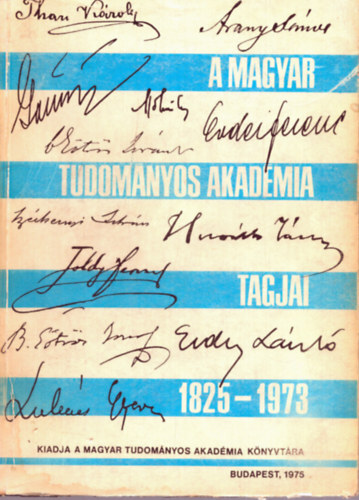 Than Károly
Arany János
A MAGYAR
Erdei Ferenc
b Eötvös Loránd
TUDOMÁNYOS AKADÉMIA
Széchenyi István
Horváth János
Toldy Ferenc
TAGJAI
B. Eötvös József
Erdey László
1825–1973
Lukács György
KIADJA A MAGYAR TUDOMÁNYOS AKADÉMIA KÖNYVTÁRA
BUDAPEST, 1975